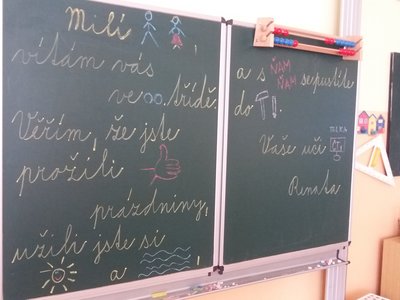 Milí
vítám vás
ve třídě.
Věřím, že jste
prožili
prázdniny,
užili jste si
a
a s ŇAM ŇAM se pustíte
do
Vaše učí
Renata